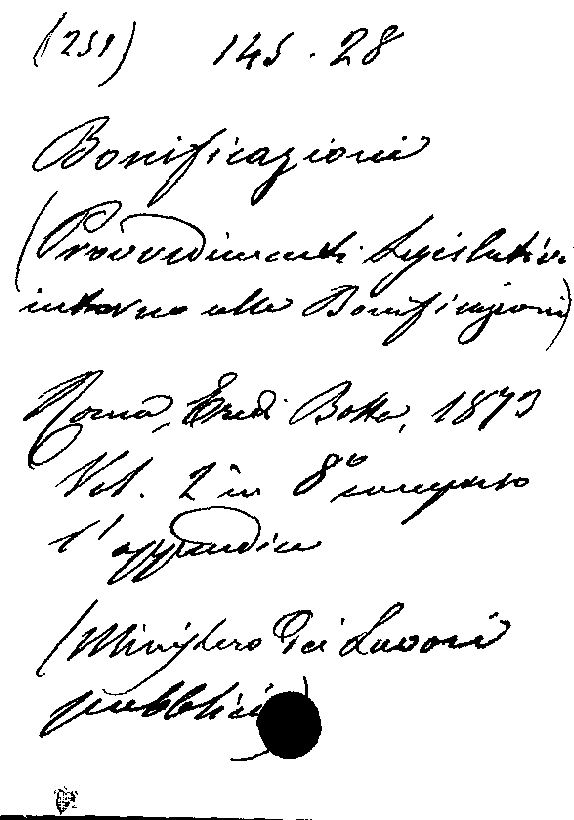 (251) 145.28
Bonificazioni
(Provvedimenti legislativi
intorno alle Bonificazioni)
Roma, Eredi Botta, 1873
Vol. 2 in 8° compreso
l'appendice
(Ministero dei Lavori
pubblici)